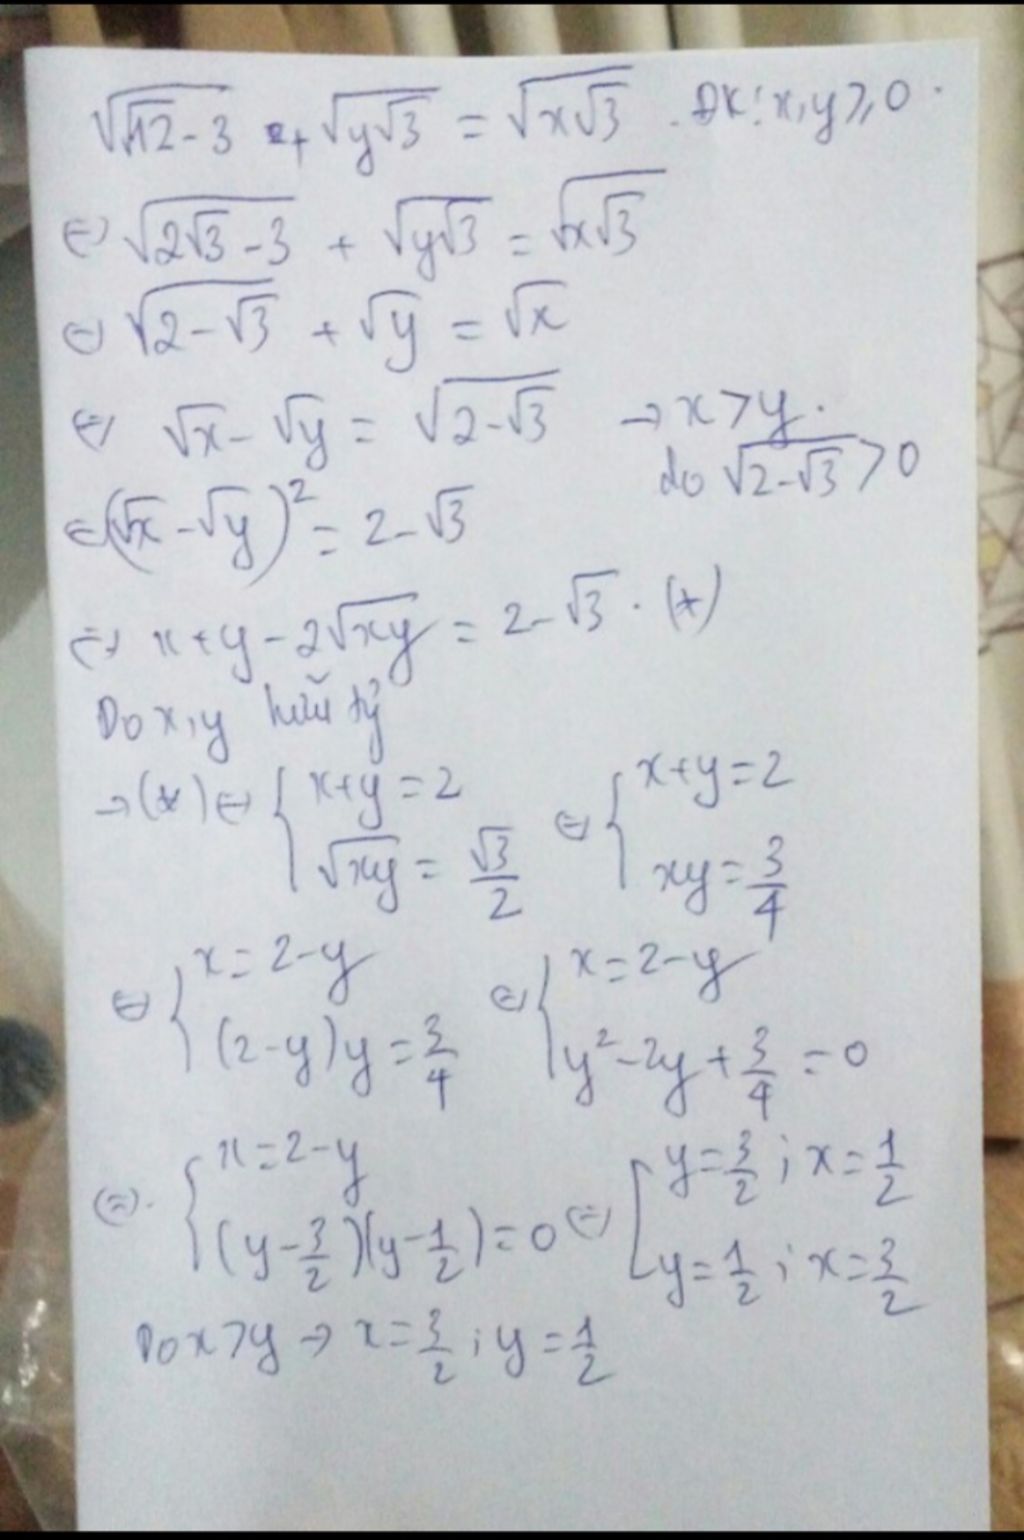 √(√12 - 3) + √(y√3) = √(x√3) . ĐK: x,y ≥ 0.
⇔ √(2√3 - 3) + √(y√3) = √(x√3)
⇔ √(2-√3) + √y = √x
⇔ √x - √y = √(2-√3) → x > y.
do √(2-√3) > 0
⇔ (√x - √y)² = 2-√3
⇔ x + y - 2√(xy) = 2-√3 . (*)
Do x,y hữu tỷ
→ (*) ⇔ { x+y = 2 ; √(xy) = √3/2 ⇔ { x+y = 2 ; xy = 3/4
⇔ { x = 2-y ; (2-y)y = 3/4 ⇔ { x = 2-y ; y² - 2y + 3/4 = 0
⇔ { x = 2-y ; (y - 3/2)(y - 1/2) = 0 ⇔ [ y = 3/2 ; x = 1/2
y = 1/2 ; x = 3/2
Do x > y → x = 3/2 ; y = 1/2